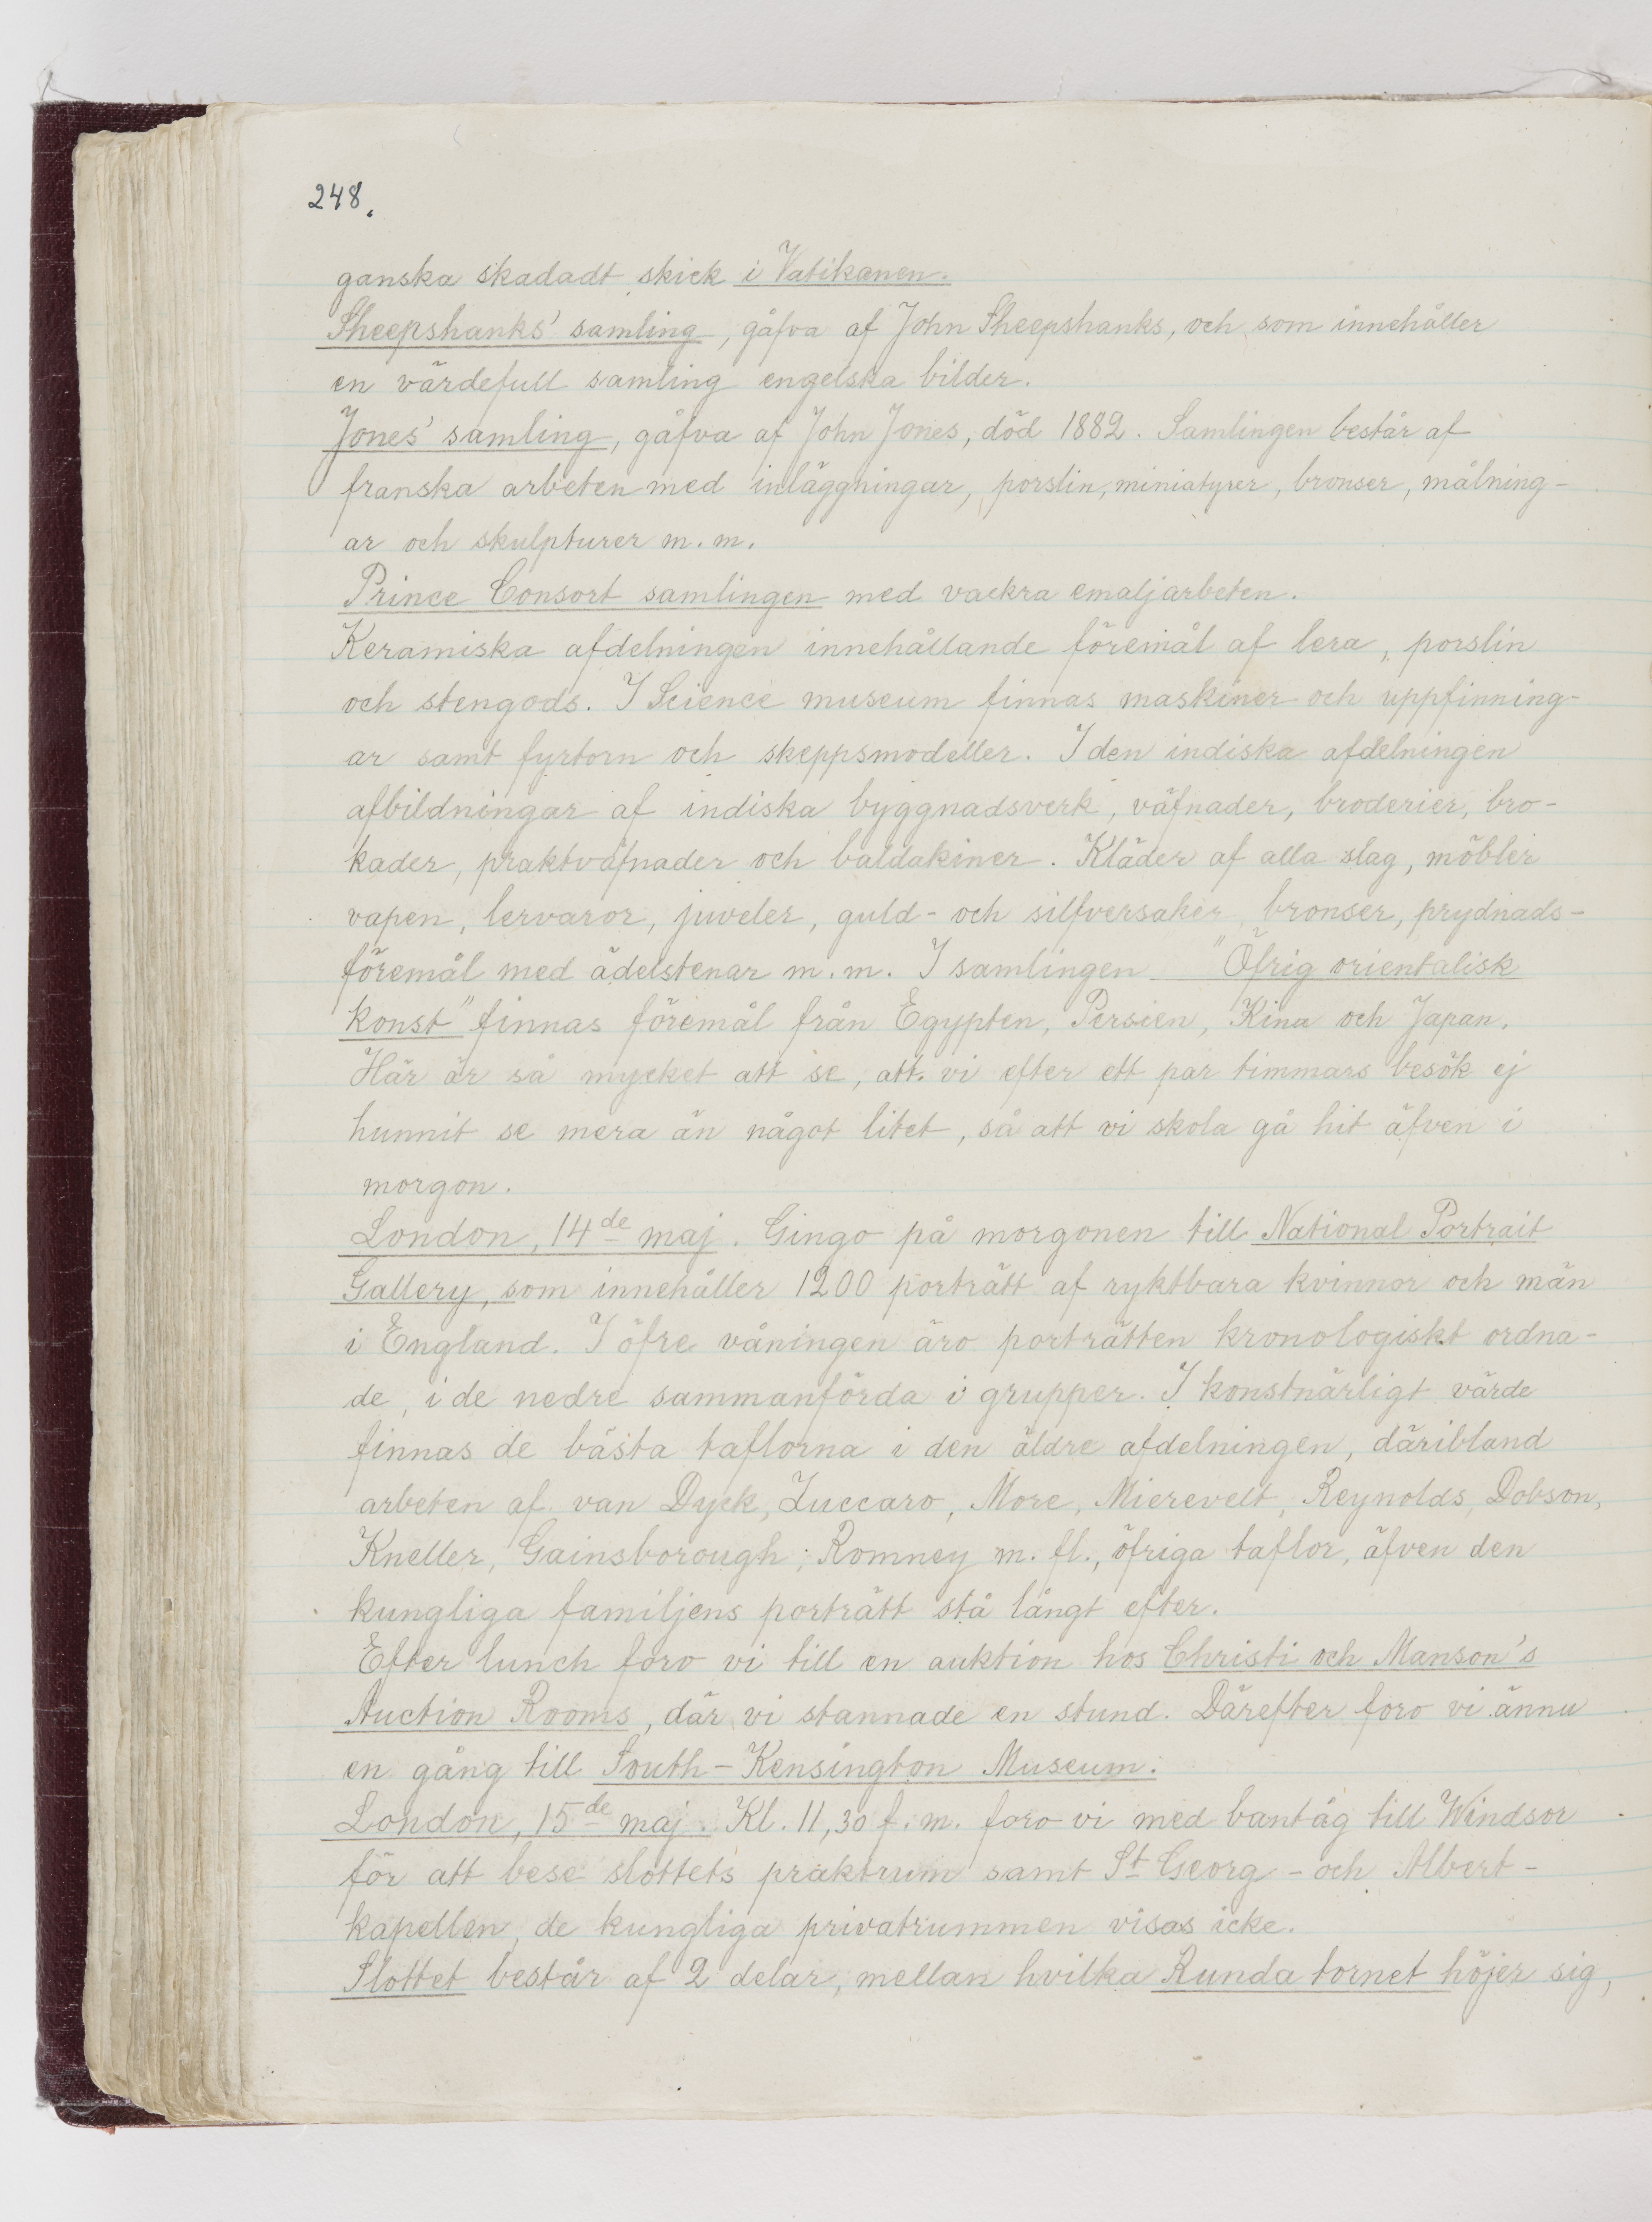 248.
ganska skadadt skick i Vatikanen.
Sheepshanks' samling, gåfva af John Sheepshanks, och som innehåller
en värdefull samling engelska bilder.
Jones' samling, gåfva af John Jones, död 1882. Samlingen består af
franska arbeten med inläggningar, porslin, miniatyrer, bronser, målning-
ar och skulpturer m. m.
Prince Consort samlingen med vackra emaljarbeten.
Keramiska afdelningen innehållande föremål af lera, porslin
och stengods. I Science museum finnas maskiner och uppfinning-
ar samt fyrtorn och skeppsmodeller. I den indiska afdelningen
afbildningar af indiska byggnadsverk, väfnader, broderier, bro-
kader, praktväfnader och baldakiner. Kläder af alla slag, möbler
vapen, lervaror, juveler, guld- och silfversaker, bronser, prydnads-
föremål med ädelstenar m. m. I samlingen "Öfrig orientalisk
konst" finnas föremål från Egypten, Persien, Kina och Japan.
Här är så mycket att se, att vi efter ett par timmars besök ej
hunnit se mera än något litet, så att vi skola gå hit äfven i
morgon.
London, 14de maj. Gingo på morgonen till National Portrait
Gallery, som innehåller 1200 porträtt af ryktbara kvinnor och män
i England. I öfre våningen äro porträtten kronologiskt ordna-
de, i de nedre sammanförda i grupper. I konstnärligt värde
finnas de bästa taflorna i den äldre afdelningen, däribland
arbeten af van Dyck, Zuccaro, More, Mierevelt, Reynolds, Dobson,
Kneller, Gainsborough; Romney m. fl., öfriga taflor, äfven den
kungliga familjens porträtt stå långt efter.
Efter lunch foro vi till en auktion hos Christi och Manson's
Auction Rooms, där vi stannade en stund. Därefter foro vi ännu
en gång till South-Kensington Museum.
London, 15de maj. Kl. 11,30 f. m. foro vi med bantåg till Windsor
för att bese slottets praktrum samt St Georg- och Albert-
kapellen, de kungliga privatrummen visas icke.
Slottet består af 2 delar, mellan hvilka Runda tornet höjer sig,